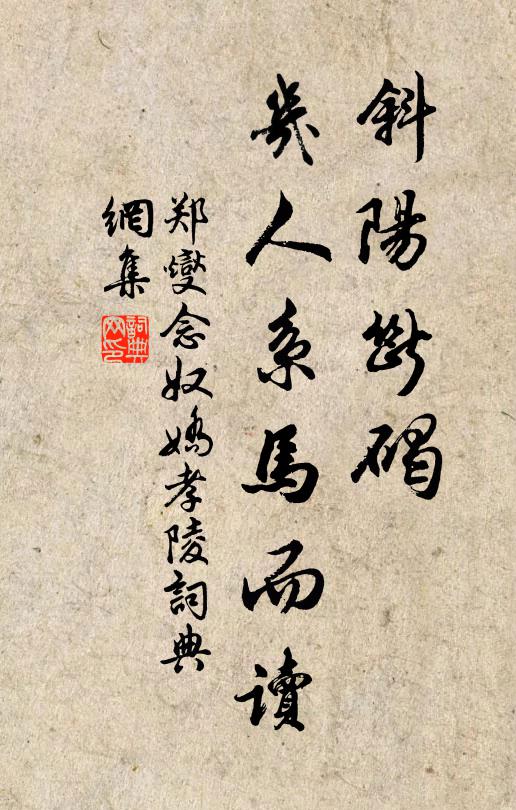 斜陽斷碣
幾人系馬而讀
郑燮念奴嬌孝陵詞典
網集
詞典
网印